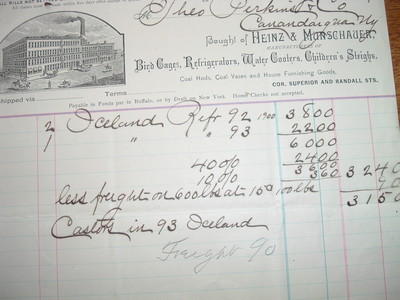 ALL BILLS MUST BE
M Theo Perkins & Co
Canandaigua Ny
Bought of HEINZ & MUNSCHAUER,
MANUFACTURERS OF
Bird Cages, Refrigerators, Water Coolers, Children's Sleighs,
Coal Hods, Coal Vases and House Furnishing Goods,
COR. SUPERIOR AND RANDALL STS.
Shipped via Terms
Payable in Funds par in Buffalo, or by Draft on New York. Home Checks not accepted.
2 Iceland Refr 92 1900 3800
1 " " 93 2200
6000
40% 2400
3600
10% 360 3240
less freight on 600 lbs at 15¢ 100 lbs 90
3150
Castors in 93 Iceland
Freight 90